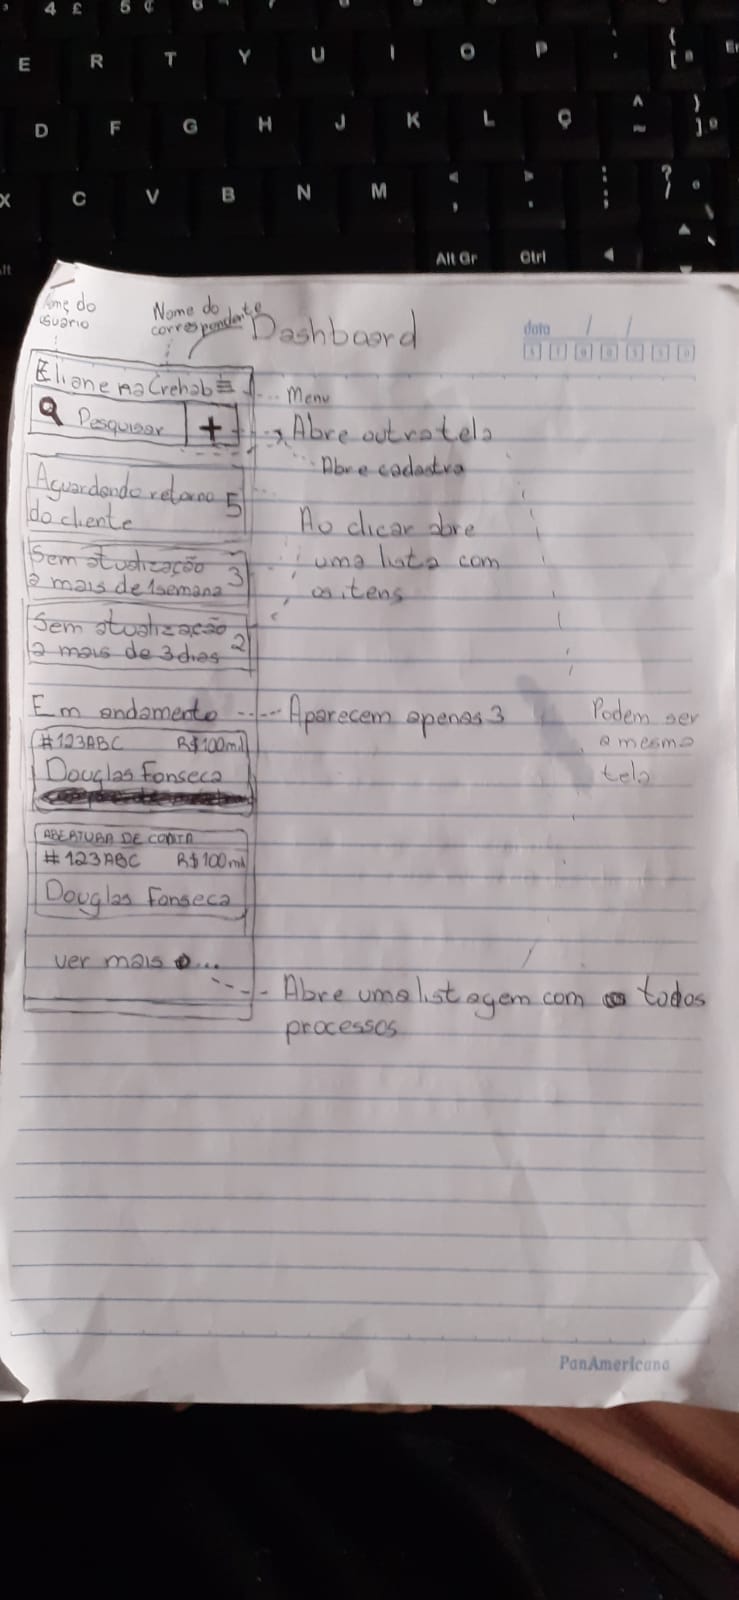 4 £ 5 ¢ 6
E R T Y U I O P ` { [ ª
D F G H J K L Ç ^ ~ } ] º
X C V B N M < , > . : ; ? / °
Alt Gr Ctrl
Nome do usuário
Nome do correspondente
Dashbaord
data / /
Eliane na Crehab
Menu
Pesquisar +
Abre outra tela
Abre cadastro
Aguardando retorno do cliente 5
Ao clicar abre
uma lista com
os itens
Sem atualização
a mais de 1 semana 3
Sem atualização
a mais de 3 dias 2
Em andamento
Aparecem apenas 3
Podem ser
a mesma
tela
#123ABC R$100mil
Douglas Fonseca
ABERTURA DE CONTA
#123ABC R$100mil
Douglas Fonseca
ver mais ...
Abre uma listagem com todos
processos
PanAmericana